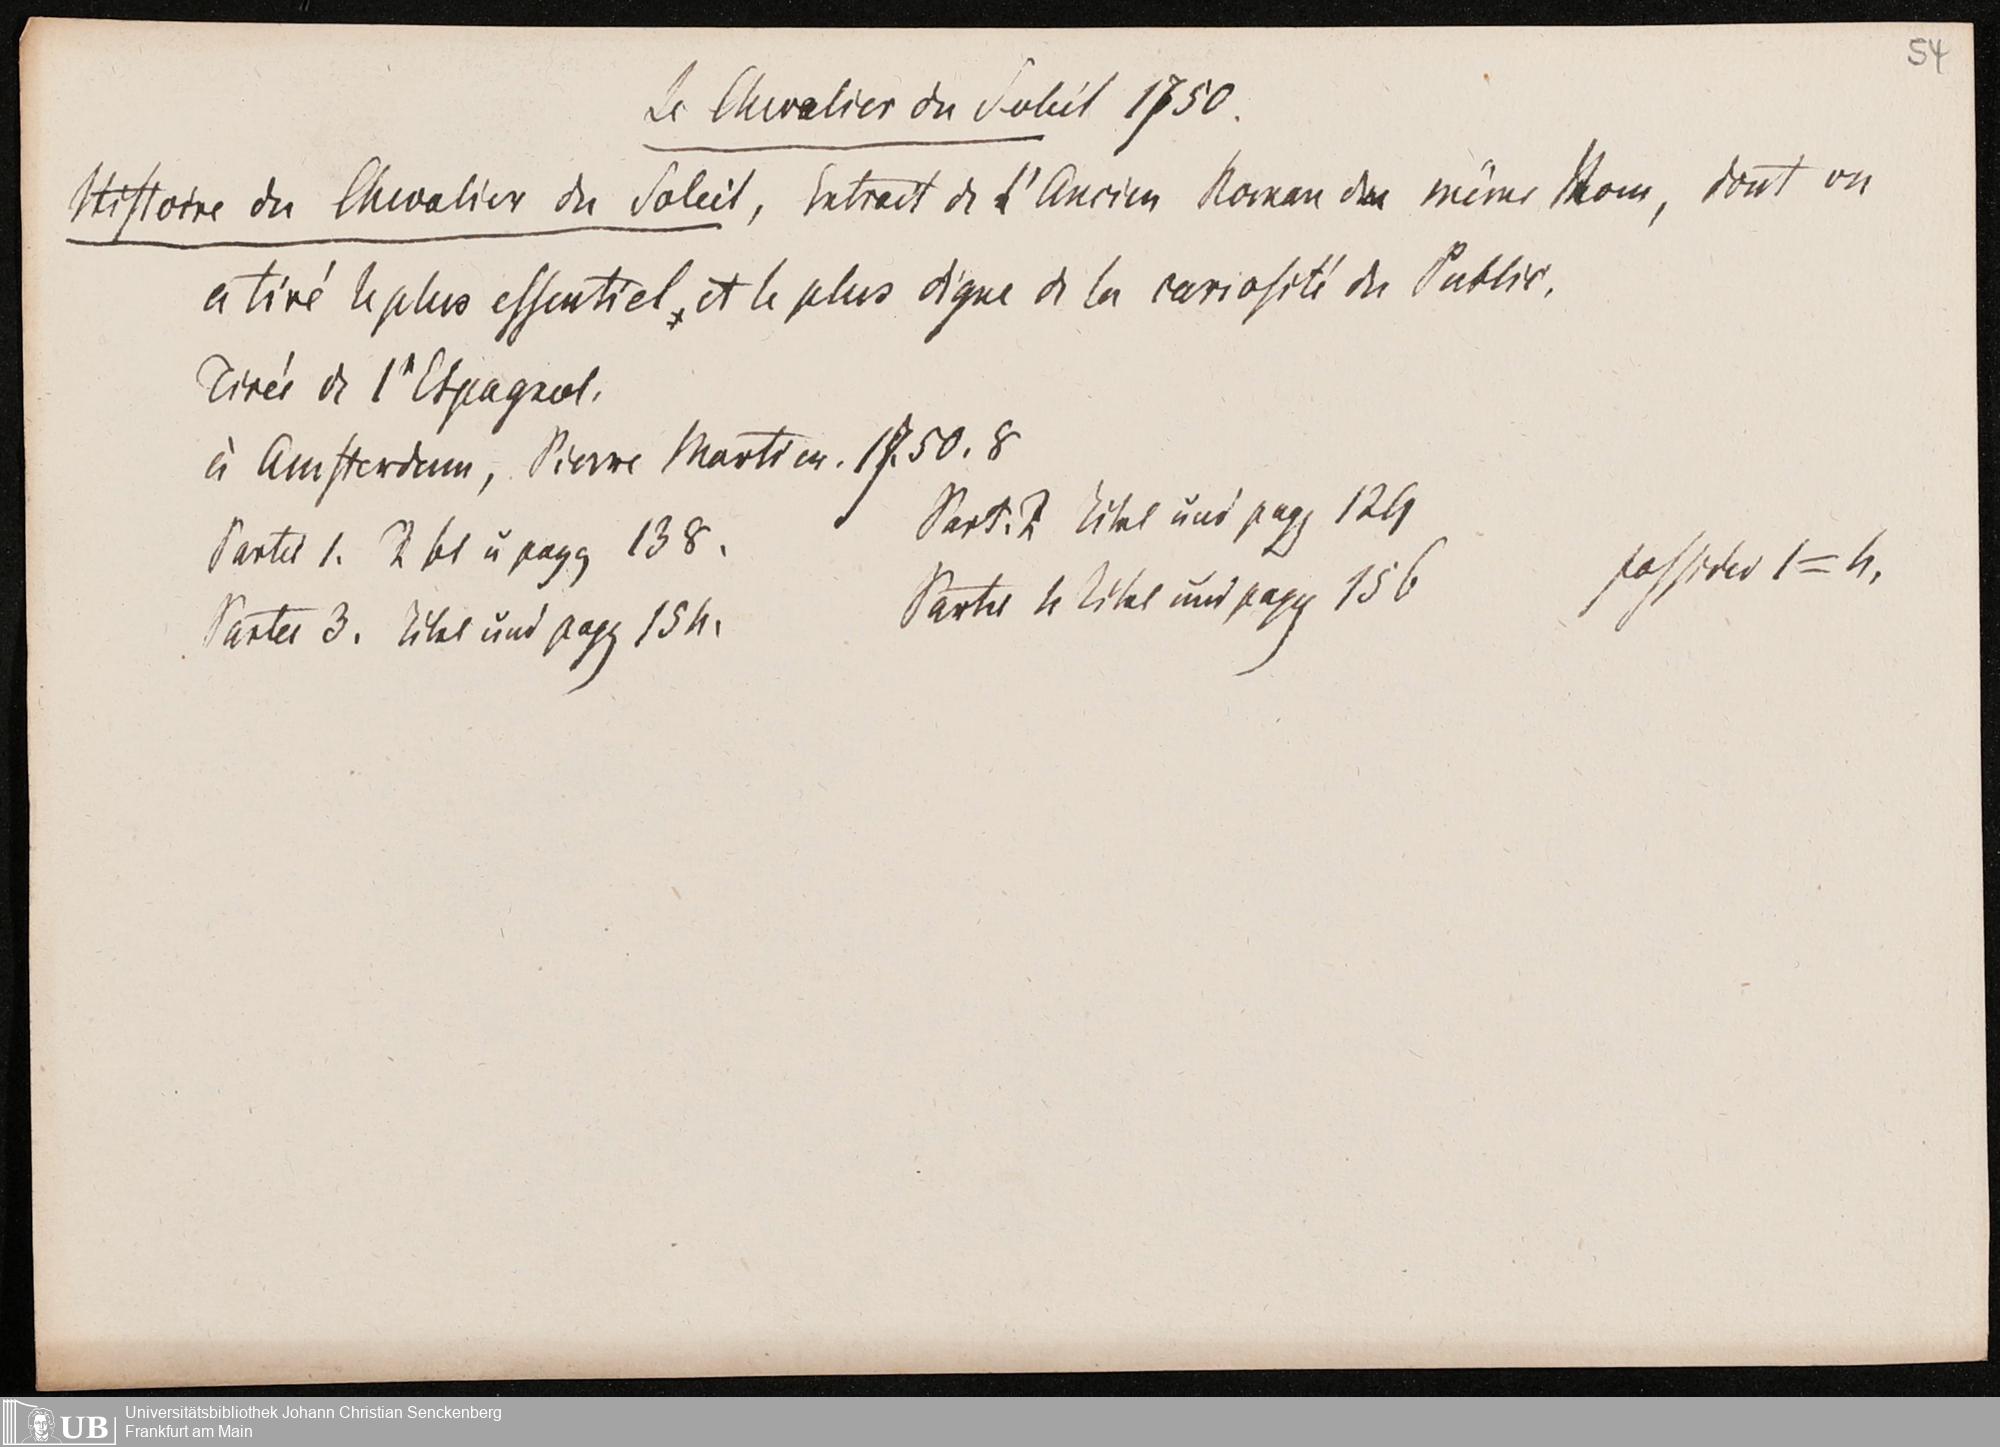 54
Le Chevalier du Soleil 1750.
Histoire du Chevalier du Soleil, Extrait de L'Ancien Roman du même Nom, dont on
a tiré le plus essentiel, et le plus digne de la curiosité du Public.
Tirée de l'Espagnol.
à Amsterdam, Pierre Mortier. 1750. 8
Partie 1. 2 bl u pagg 138. Part. 2 Titel und pagg 124
Partie 3. Titel und pagg 154. Partie 4 Titel und pagg 156
possideo 1=4.
Universitätsbibliothek Johann Christian Senckenberg
Frankfurt am Main
UB